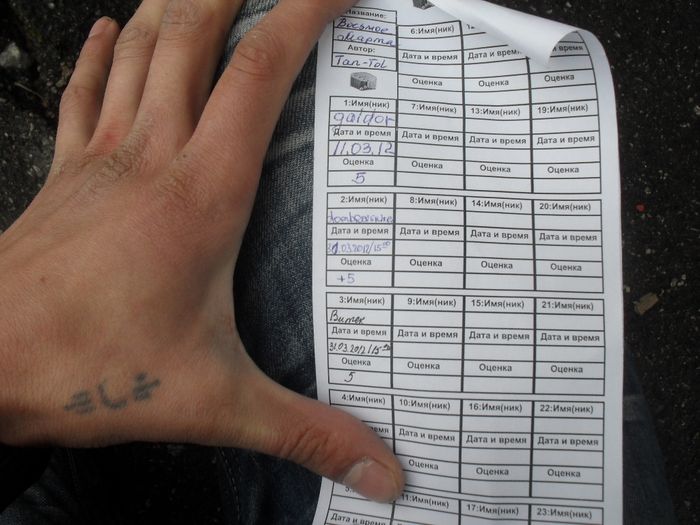 Название:
Восьмое
Марта
Автор:
Tan-Tol
6:Имя(ник)
Дата и время
Дата и время
Дата и время
Оценка
Оценка
Оценка
1:Имя(ник)
7:Имя(ник)
13:Имя(ник)
19:Имя(ник)
galdor
Дата и время
Дата и время
Дата и время
Дата и время
11.03.12
Оценка
Оценка
Оценка
Оценка
5
2:Имя(ник)
8:Имя(ник)
14:Имя(ник)
20:Имя(ник)
Дата и время
Дата и время
Дата и время
Дата и время
Оценка
Оценка
Оценка
Оценка
+5
3:Имя(ник)
9:Имя(ник)
15:Имя(ник)
21:Имя(ник)
Витек
Дата и время
Дата и время
Дата и время
Дата и время
31.03.2012/15
Оценка
Оценка
Оценка
Оценка
5
4:Имя(ник)
10:Имя(ник)
16:Имя(ник)
22:Имя(ник)
время
Дата и время
Дата и время
Дата и время
Оценка
Оценка
Оценка
11:Имя(ник)
17:Имя(ник)
23:Имя(ник)